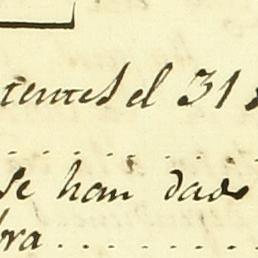 tentes el 31
se han dado
bra . . . . . . . .